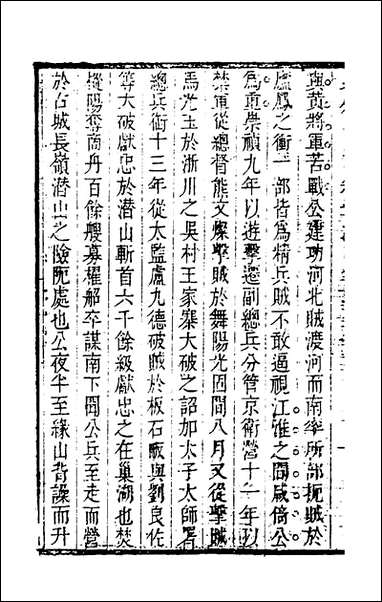 與黃將軍苦戰公建功河北賊渡河而南率所部扼賊於
廬鳳之衝一部皆為精兵賊不敢逼視江淮之間咸倚公
為重崇禎九年以遊擊遷副總兵分管京衛營十一年以
禁軍從總督熊文燦擊賊於舞陽光固間八月又從擊賊
馬光玉於淅川之吳村王家寨大破之詔加太子太師署
總兵銜十三年從太監盧九德破賊於板石畈與劉良佐
等大破獻忠於潛山斬首六千餘級獻忠之在巢湖也焚
樅陽奪商舟百餘艘募櫂船卒謀南下聞公兵至走而營
於古城長嶺潛山之險阨處也公夜半至緣山背譟而升